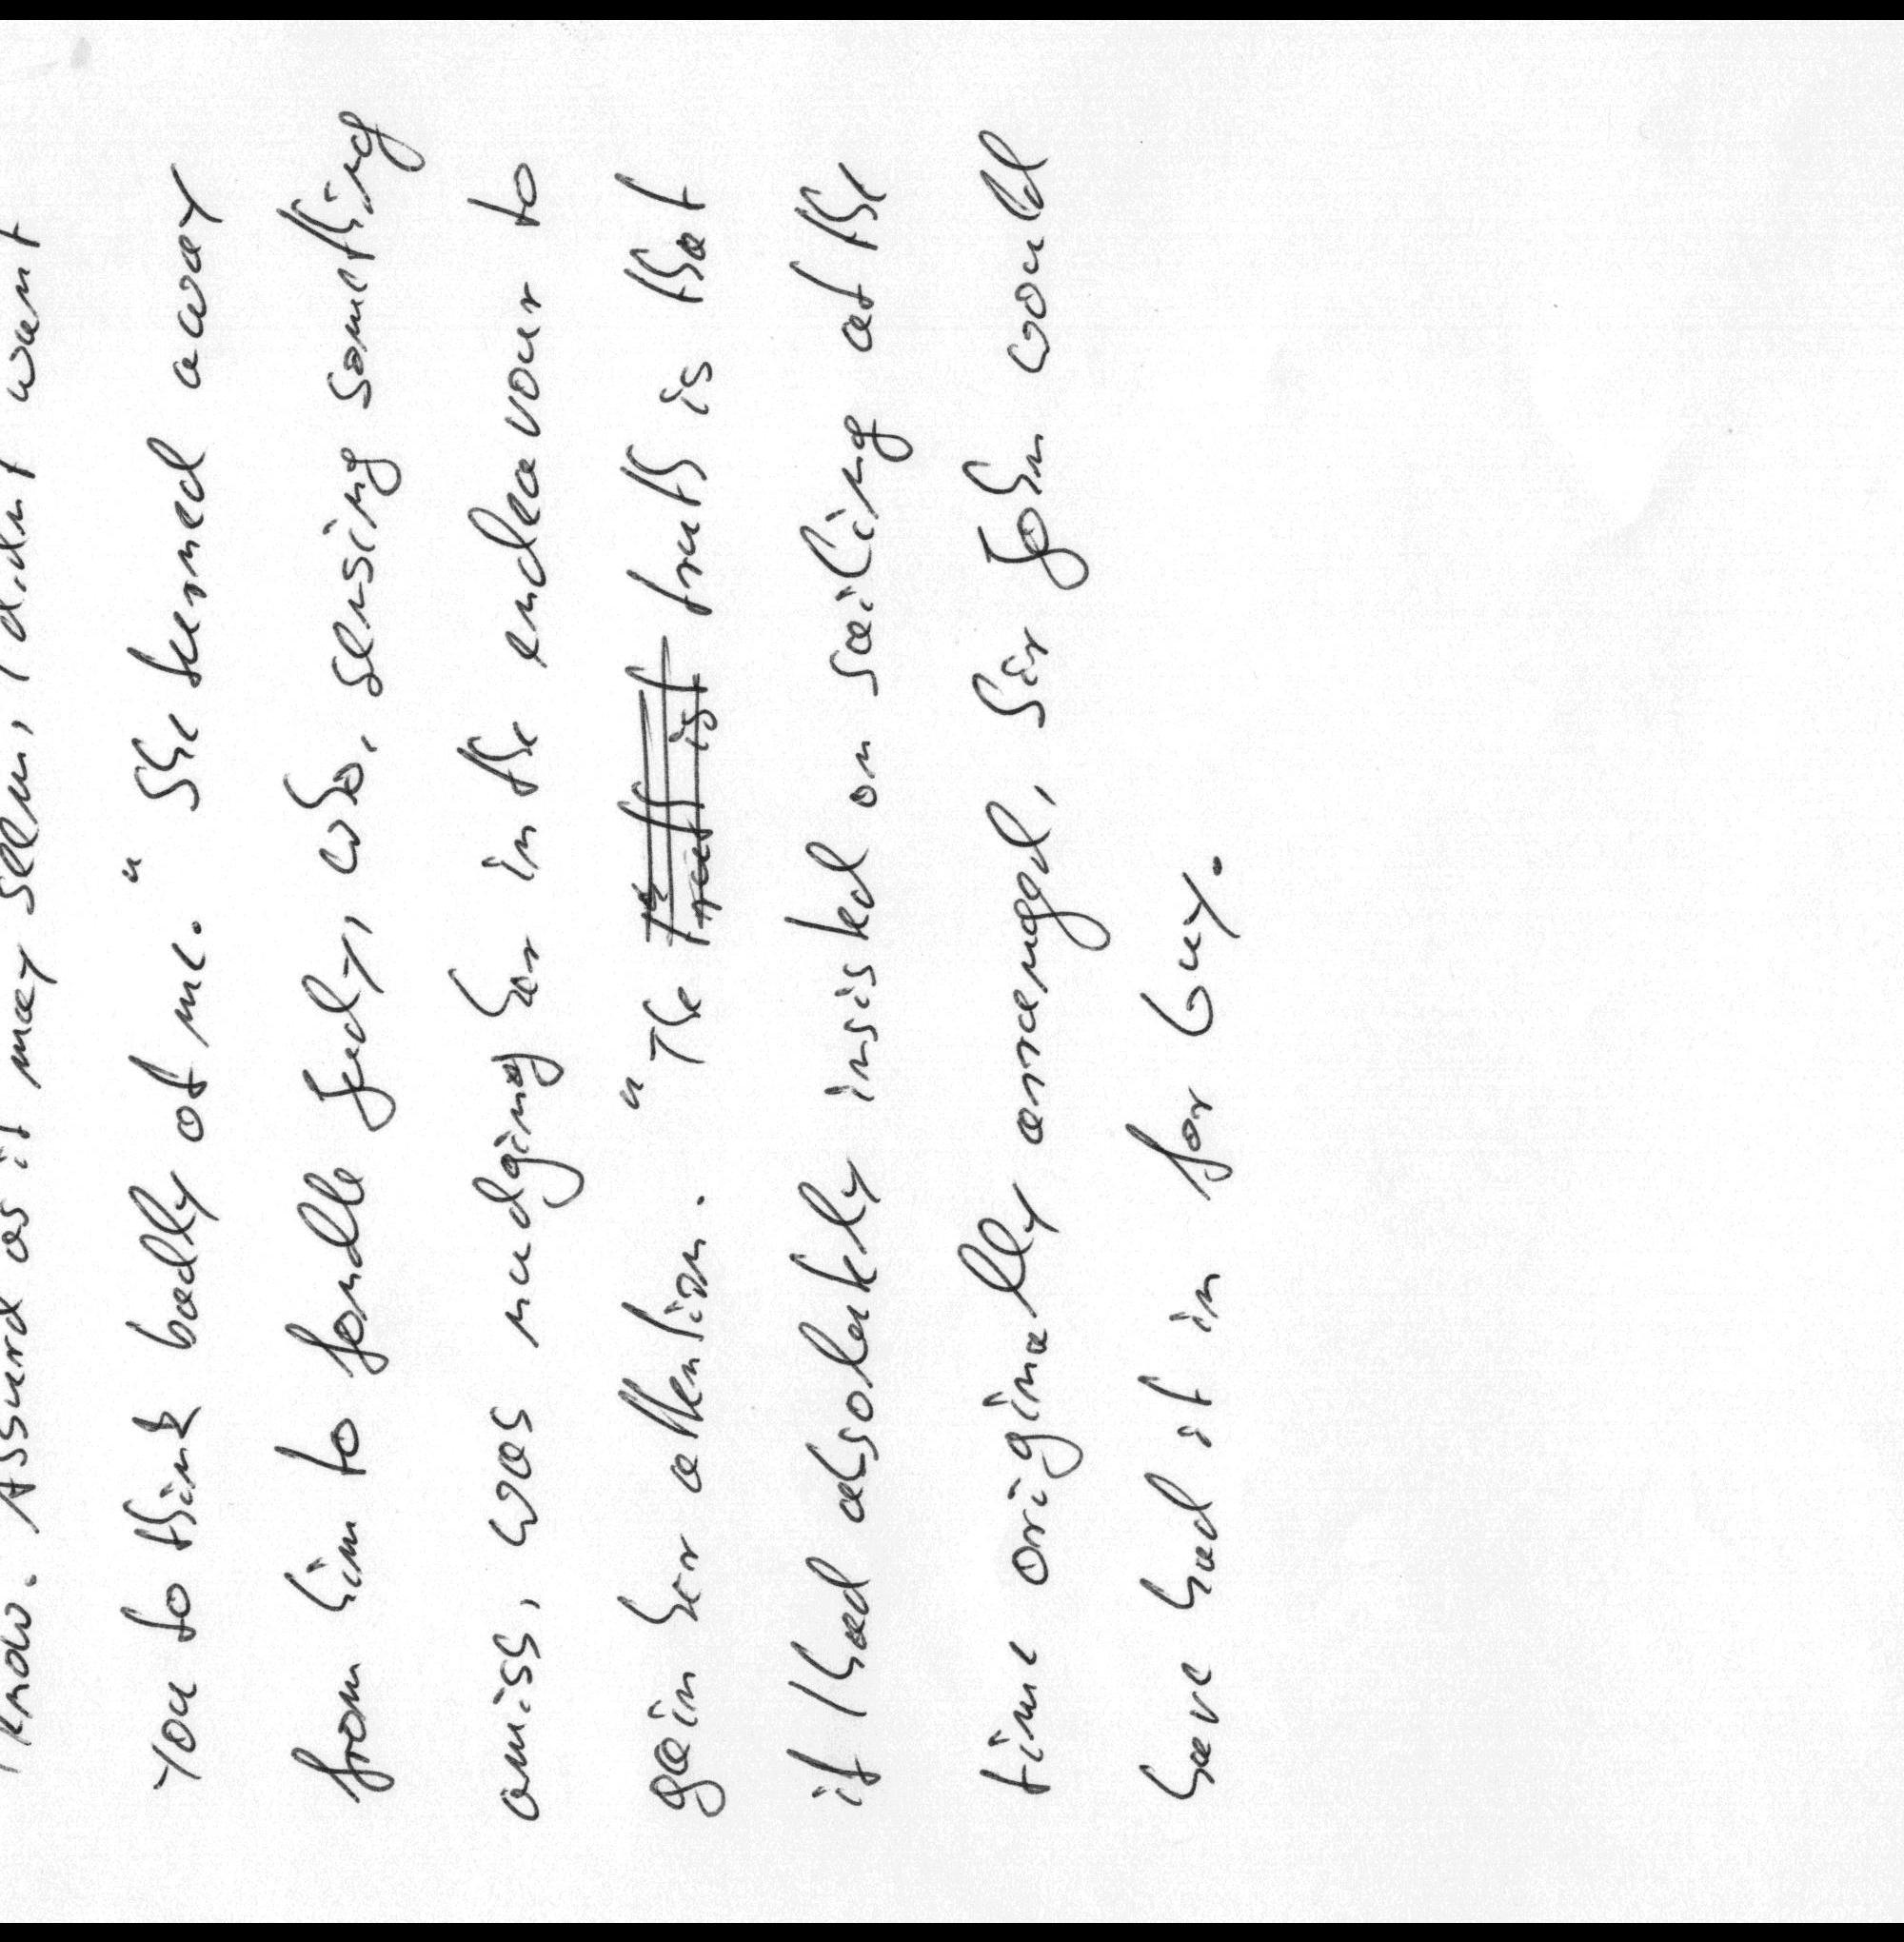 know. Absurd as it may seem, I didn't want
you to think badly of me." She turned away
from him to fondle Judy, who, sensing something
amiss, was nudging her in the endeavour to
gain her attention. "The truth is that
if I had absolutely insisted on sailing at the
time originally arranged, Sir John would
have had it in for Guy.